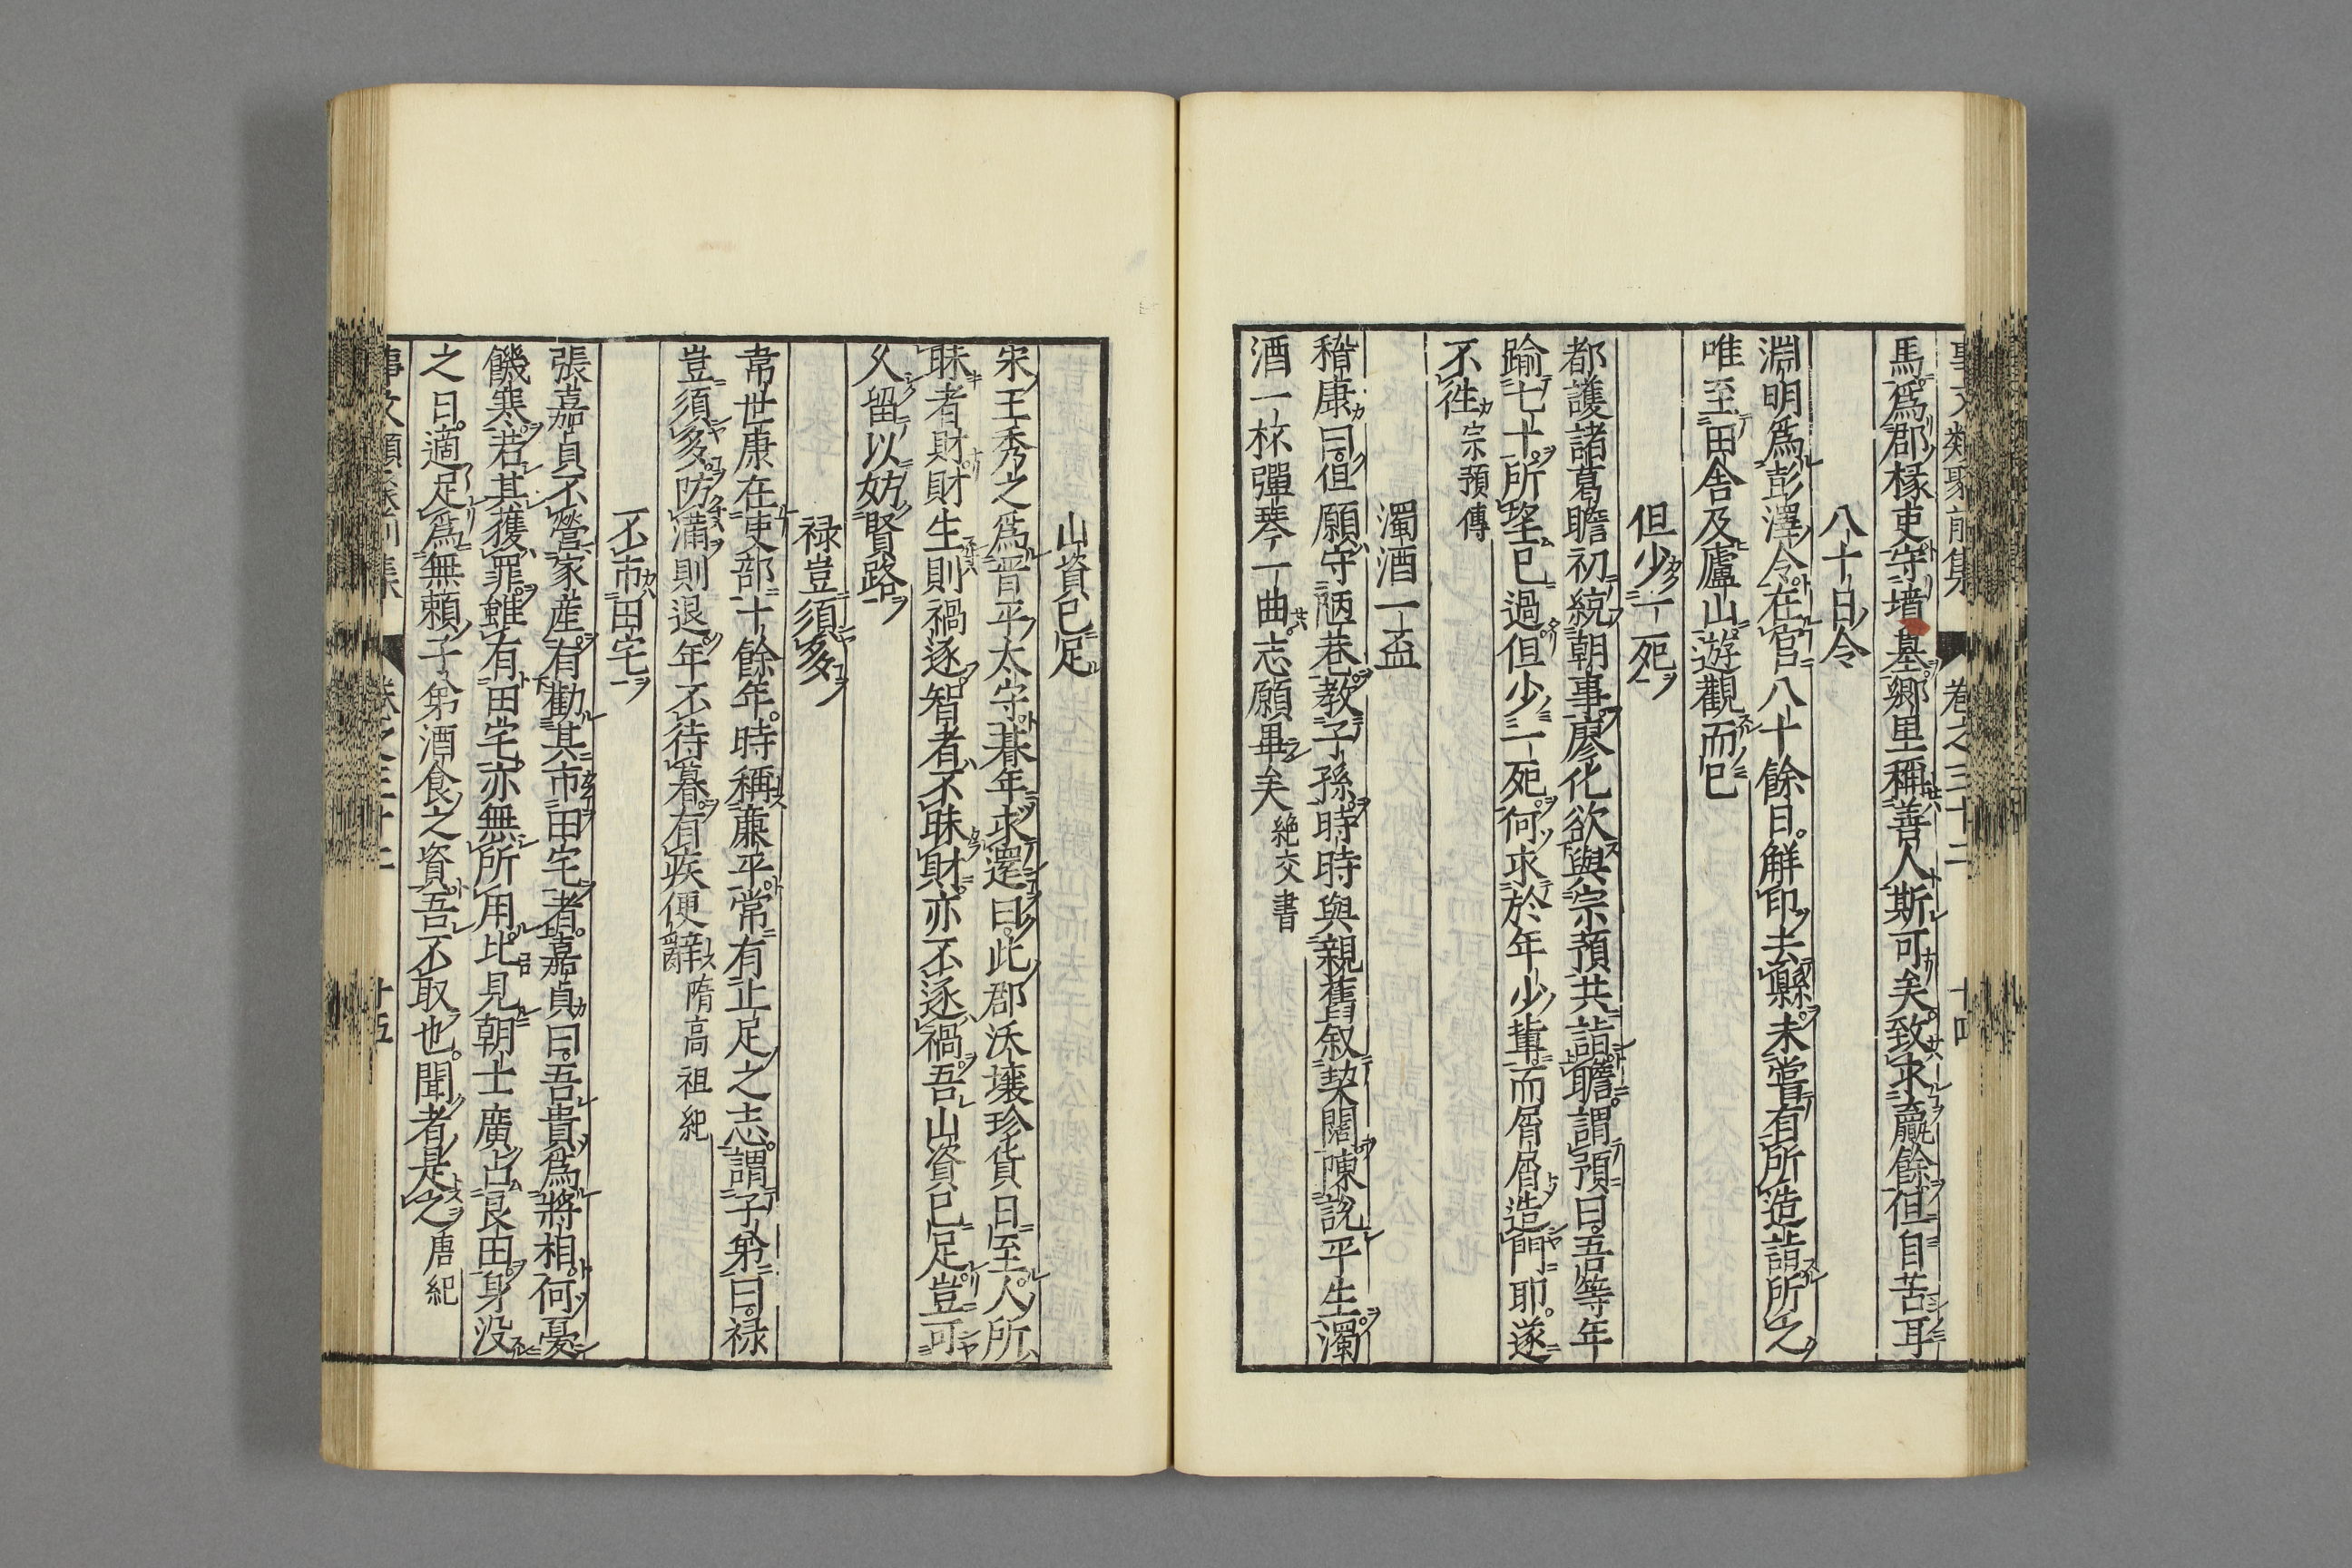 事文類聚前集 卷之三十二 十四
馬爲郡掾吏守墳墓鄉里稱善人斯可矣致求贏餘但自苦耳
八十日令
淵明爲彭澤令在官八十餘日解印去縣未嘗有所造詣所之
唯至田舍及廬山遊觀而已
但少一死
都護諸葛瞻初統朝事廖化欲與宗預共詣瞻謂預曰吾等年
踰七十所望已過但少一死何求於年少輩而屑屑造門耶遂
不徃 宗預傳
濁酒一盃
稽康曰但願守陋巷教子孫時時與親舊叙契闊陳説平生濁
酒一杯彈琴一曲志願畢矣 絶交書
山資已足
宋王秀之爲晋平太守朞年求還曰此郡沃壤珍貨日至人所
昧者財財生則禍逐智者不昧財亦不逐禍吾山資已足豈可
久留以妨賢路
禄豈須多
韋世康在吏部十餘年時稱廉平常有止足之志謂子弟曰禄
豈須多防滿則退年不待暮有疾便辭 隋高祖紀
不市田宅
張嘉貞不營家産有勸其市田宅者嘉貞曰吾貴爲將相何憂
饑寒若其獲罪雖有田宅亦無所用比見朝士廣占良田身没
之日適足爲無頼子弟酒食之資吾不取也聞者是之 唐紀
事文類聚前集 卷之三十二 十五